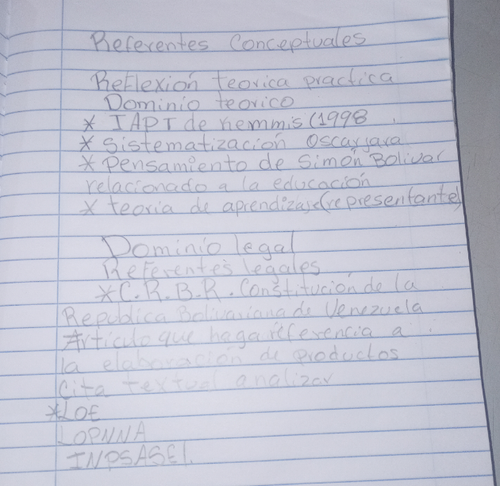 Referentes Conceptuales
Reflexión teorica practica
Dominio teorico
* IAPT de Kemmis (1998
* Sistematización Oscar jara
* Pensamiento de Simón Bolivar
relacionado a la educación
* teoria de aprendizaje (representante)
Dominio legal
Referentes legales
* C.R.B.R. Constitución de la
Republica Bolivariana de Venezuela
Articulo que haga referencia a
la elaboración de productos
Cita textual analizar
* LOE
LOPNNA
INPSASEL.